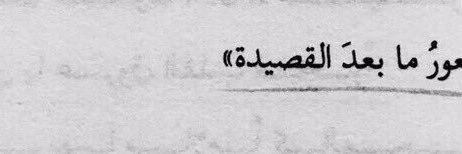 ما بعدَ القصيدة»